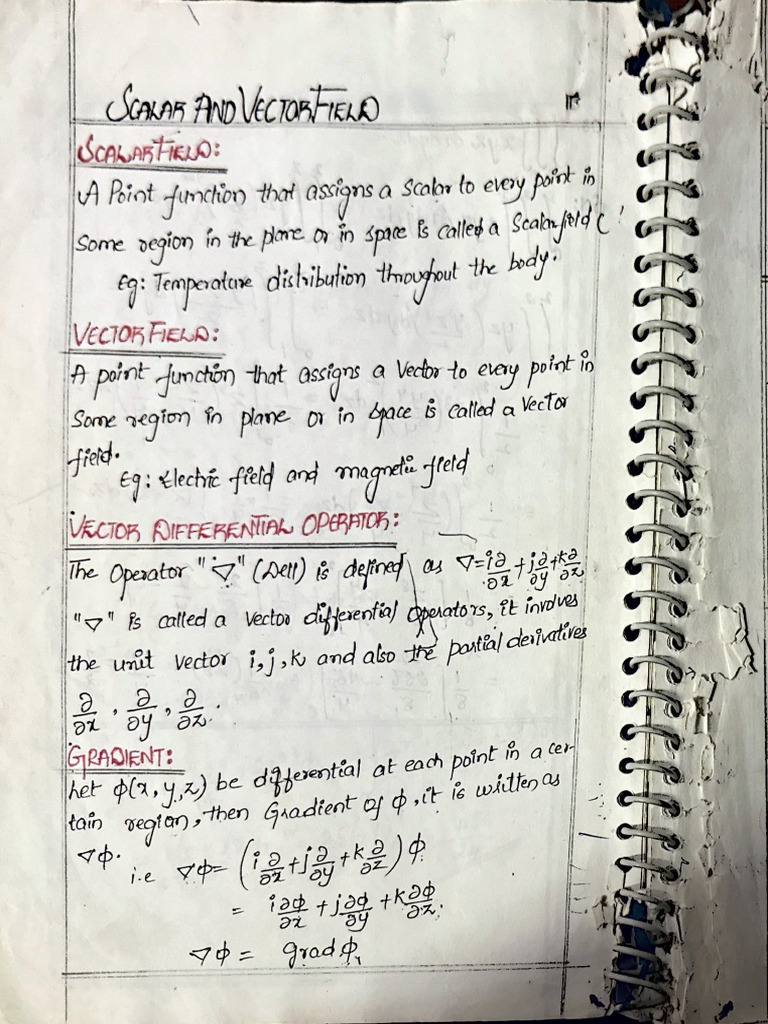 SCALAR AND VECTOR FIELD
SCALAR FIELD:
A Point function that assigns a Scalar to every point in
Some region in the plane or in space is called a Scalar field
Eg: Temperature distribution throughout the body.
VECTOR FIELD:
A point function that assigns a Vector to every point in
Some region in plane or in space is called a Vector
field.
Eg: Electric field and magnetic field
VECTOR DIFFERENTIAL OPERATOR:
The Operator "∇" (Dell) is defined as ∇=i∂/∂x+j∂/∂y+k∂/∂z
"∇" is called a vector differential operators, it involves
the unit vector i, j, k and also the partial derivatives
∂/∂x, ∂/∂y, ∂/∂z.
GRADIENT:
Let ϕ(x, y, z) be differential at each point in a cer-
tain region, then Gradient of ϕ, it is written as
∇ϕ.
i.e ∇ϕ= (i∂/∂x+j∂/∂y+k∂/∂z)ϕ
= i∂ϕ/∂x+j∂ϕ/∂y+k∂ϕ/∂z.
∇ϕ = grad ϕ,